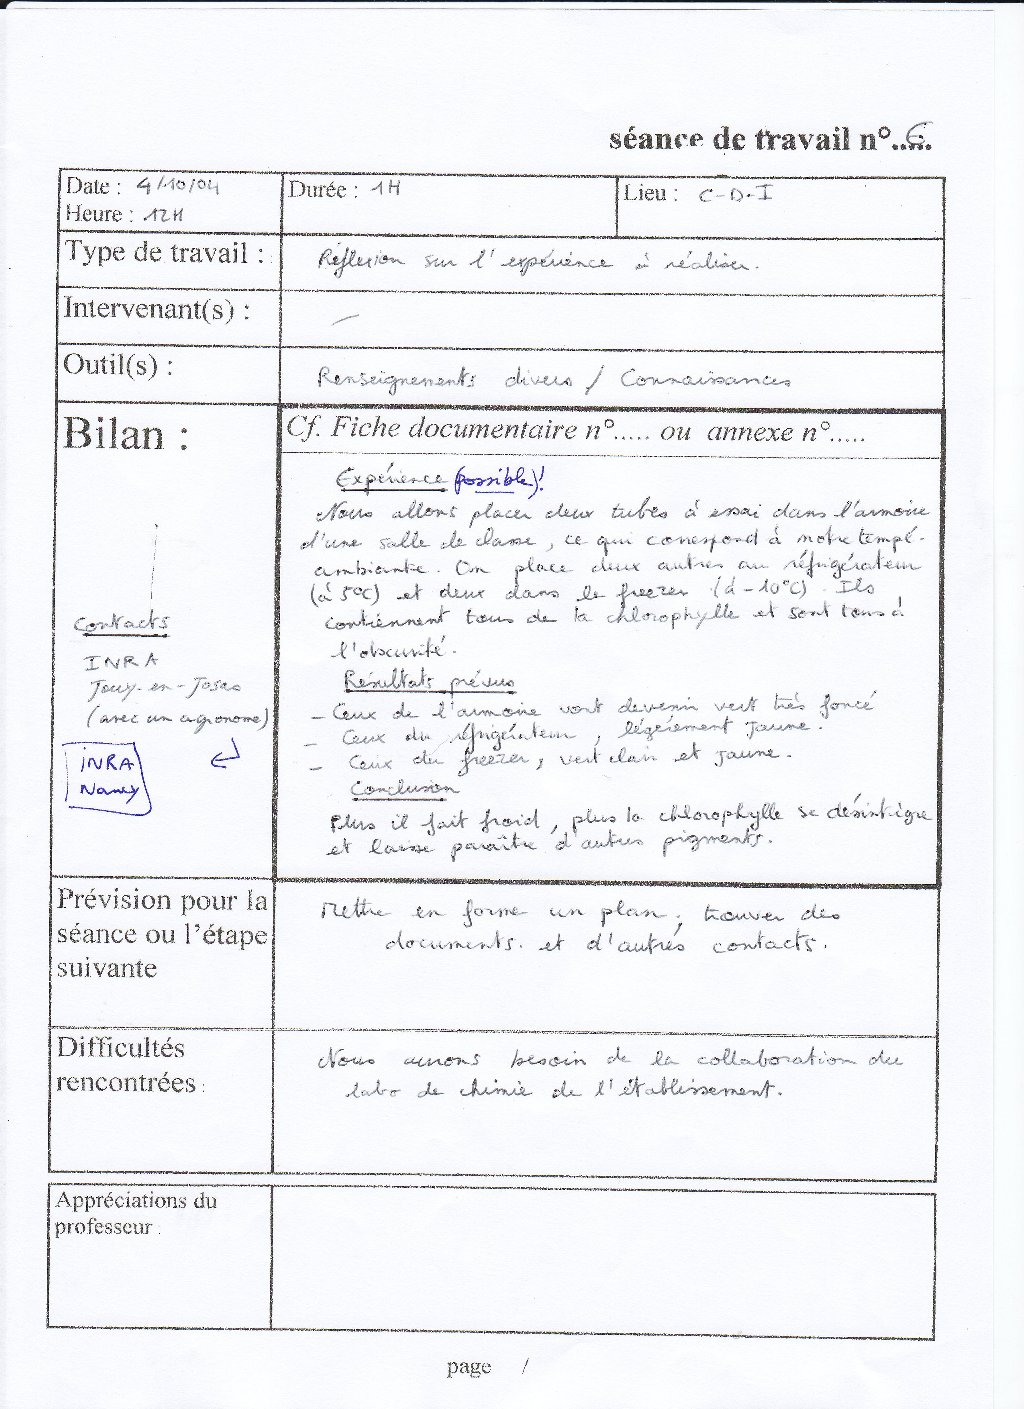 séance de travail n°..6..
Date : 4/10/04
Heure : 12H
Durée : 1H
Lieu : C-D-I
Type de travail :
Réflexion sur l'expérience à réaliser.
Intervenant(s) :
—
Outil(s) :
Renseignements divers / Connaissances
Bilan :
Cf. Fiche documentaire n°..... ou annexe n°.....
Expérience (possible)!
Nous allons placer deux tubes à essai dans l'armoire
d'une salle de classe, ce qui correspond à notre tempé-
ambiante. On place deux autres au réfrigérateur
(à 5°C) et deux dans le freezer (à -10°C). Ils
contiennent tous de la chlorophylle et sont tous à
l'obscurité.
Résultats prévus
- Ceux de l'armoire vont devenir vert très foncé
- Ceux du réfrigérateur, légèrement jaune.
- Ceux du freezer, vert clair et jaune.
Conclusion
Plus il fait froid, plus la chlorophylle se désintègre
et laisse paraître d'autres pigments.
Contacts
INRA
Jouy-en-Josas
(avec un agronome)
INRA
Nancy
Prévision pour la
séance ou l'étape
suivante
Mettre en forme un plan, trouver des
documents. et d'autres contacts.
Difficultés
rencontrées :
Nous aurons besoin de la collaboration du
labo de chimie de l'établissement.
Appréciations du
professeur :
page /